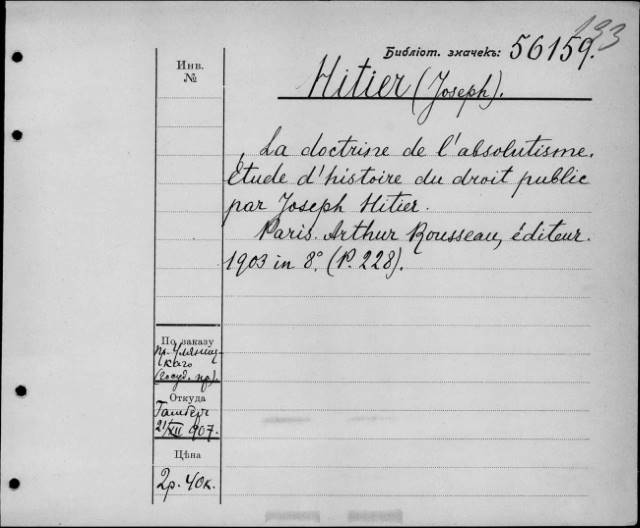 133
Библіот. значекъ: 56159.
Инв.
№
Hitier (Joseph).
La doctrine de l'absolutisme.
Étude d'histoire du droit public
par Joseph Hitier.
Paris. Arthur Rousseau, éditeur.
1903 in 8º. (P. 228).
По заказу
пр. Уляниц-
каго
(госуд. пр).
Откуда
21/XII 907.
Цѣна
2р. 40к.